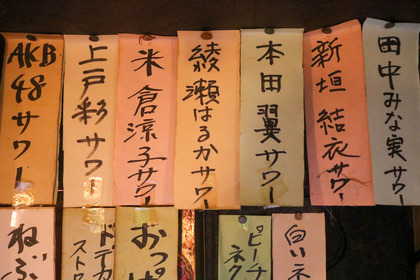 AKB48サワー
上戸彩サワー
米倉涼子サワー
綾瀬はるかサワー
本田翼サワー
新垣結衣サワー
田中みな実サワー
ねぶ
ドデカ
ストロ
おっぱ
ピーチ
ネク
白い
ネ